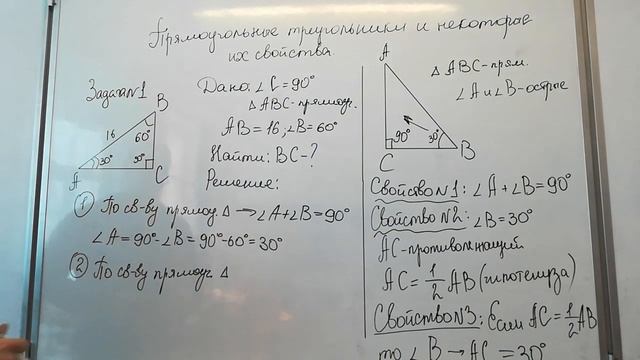 Прямоугольные треугольники и некоторые
их свойства.
Задача №1
B
16
60°
30°
90°
A
C
Дано: ∠C=90°
△ABC-прямоуг.
AB=16; ∠B=60°
Найти: BC-?
Решение:
① По св-ву прямоуг. △ → ∠A+∠B=90°
∠A=90°-∠B=90°-60°=30°
② По св-ву прямоуг. △
A
90°
30°
C
B
△ABC-прям.
∠A и ∠B-острые
Свойство №1: ∠A+∠B=90°
Свойство №2: ∠B=30°
AC-противолежащий
AC=1/2 AB (гипотенуза)
Свойство №3: Если AC=1/2 AB
то ∠B → AC = 30°